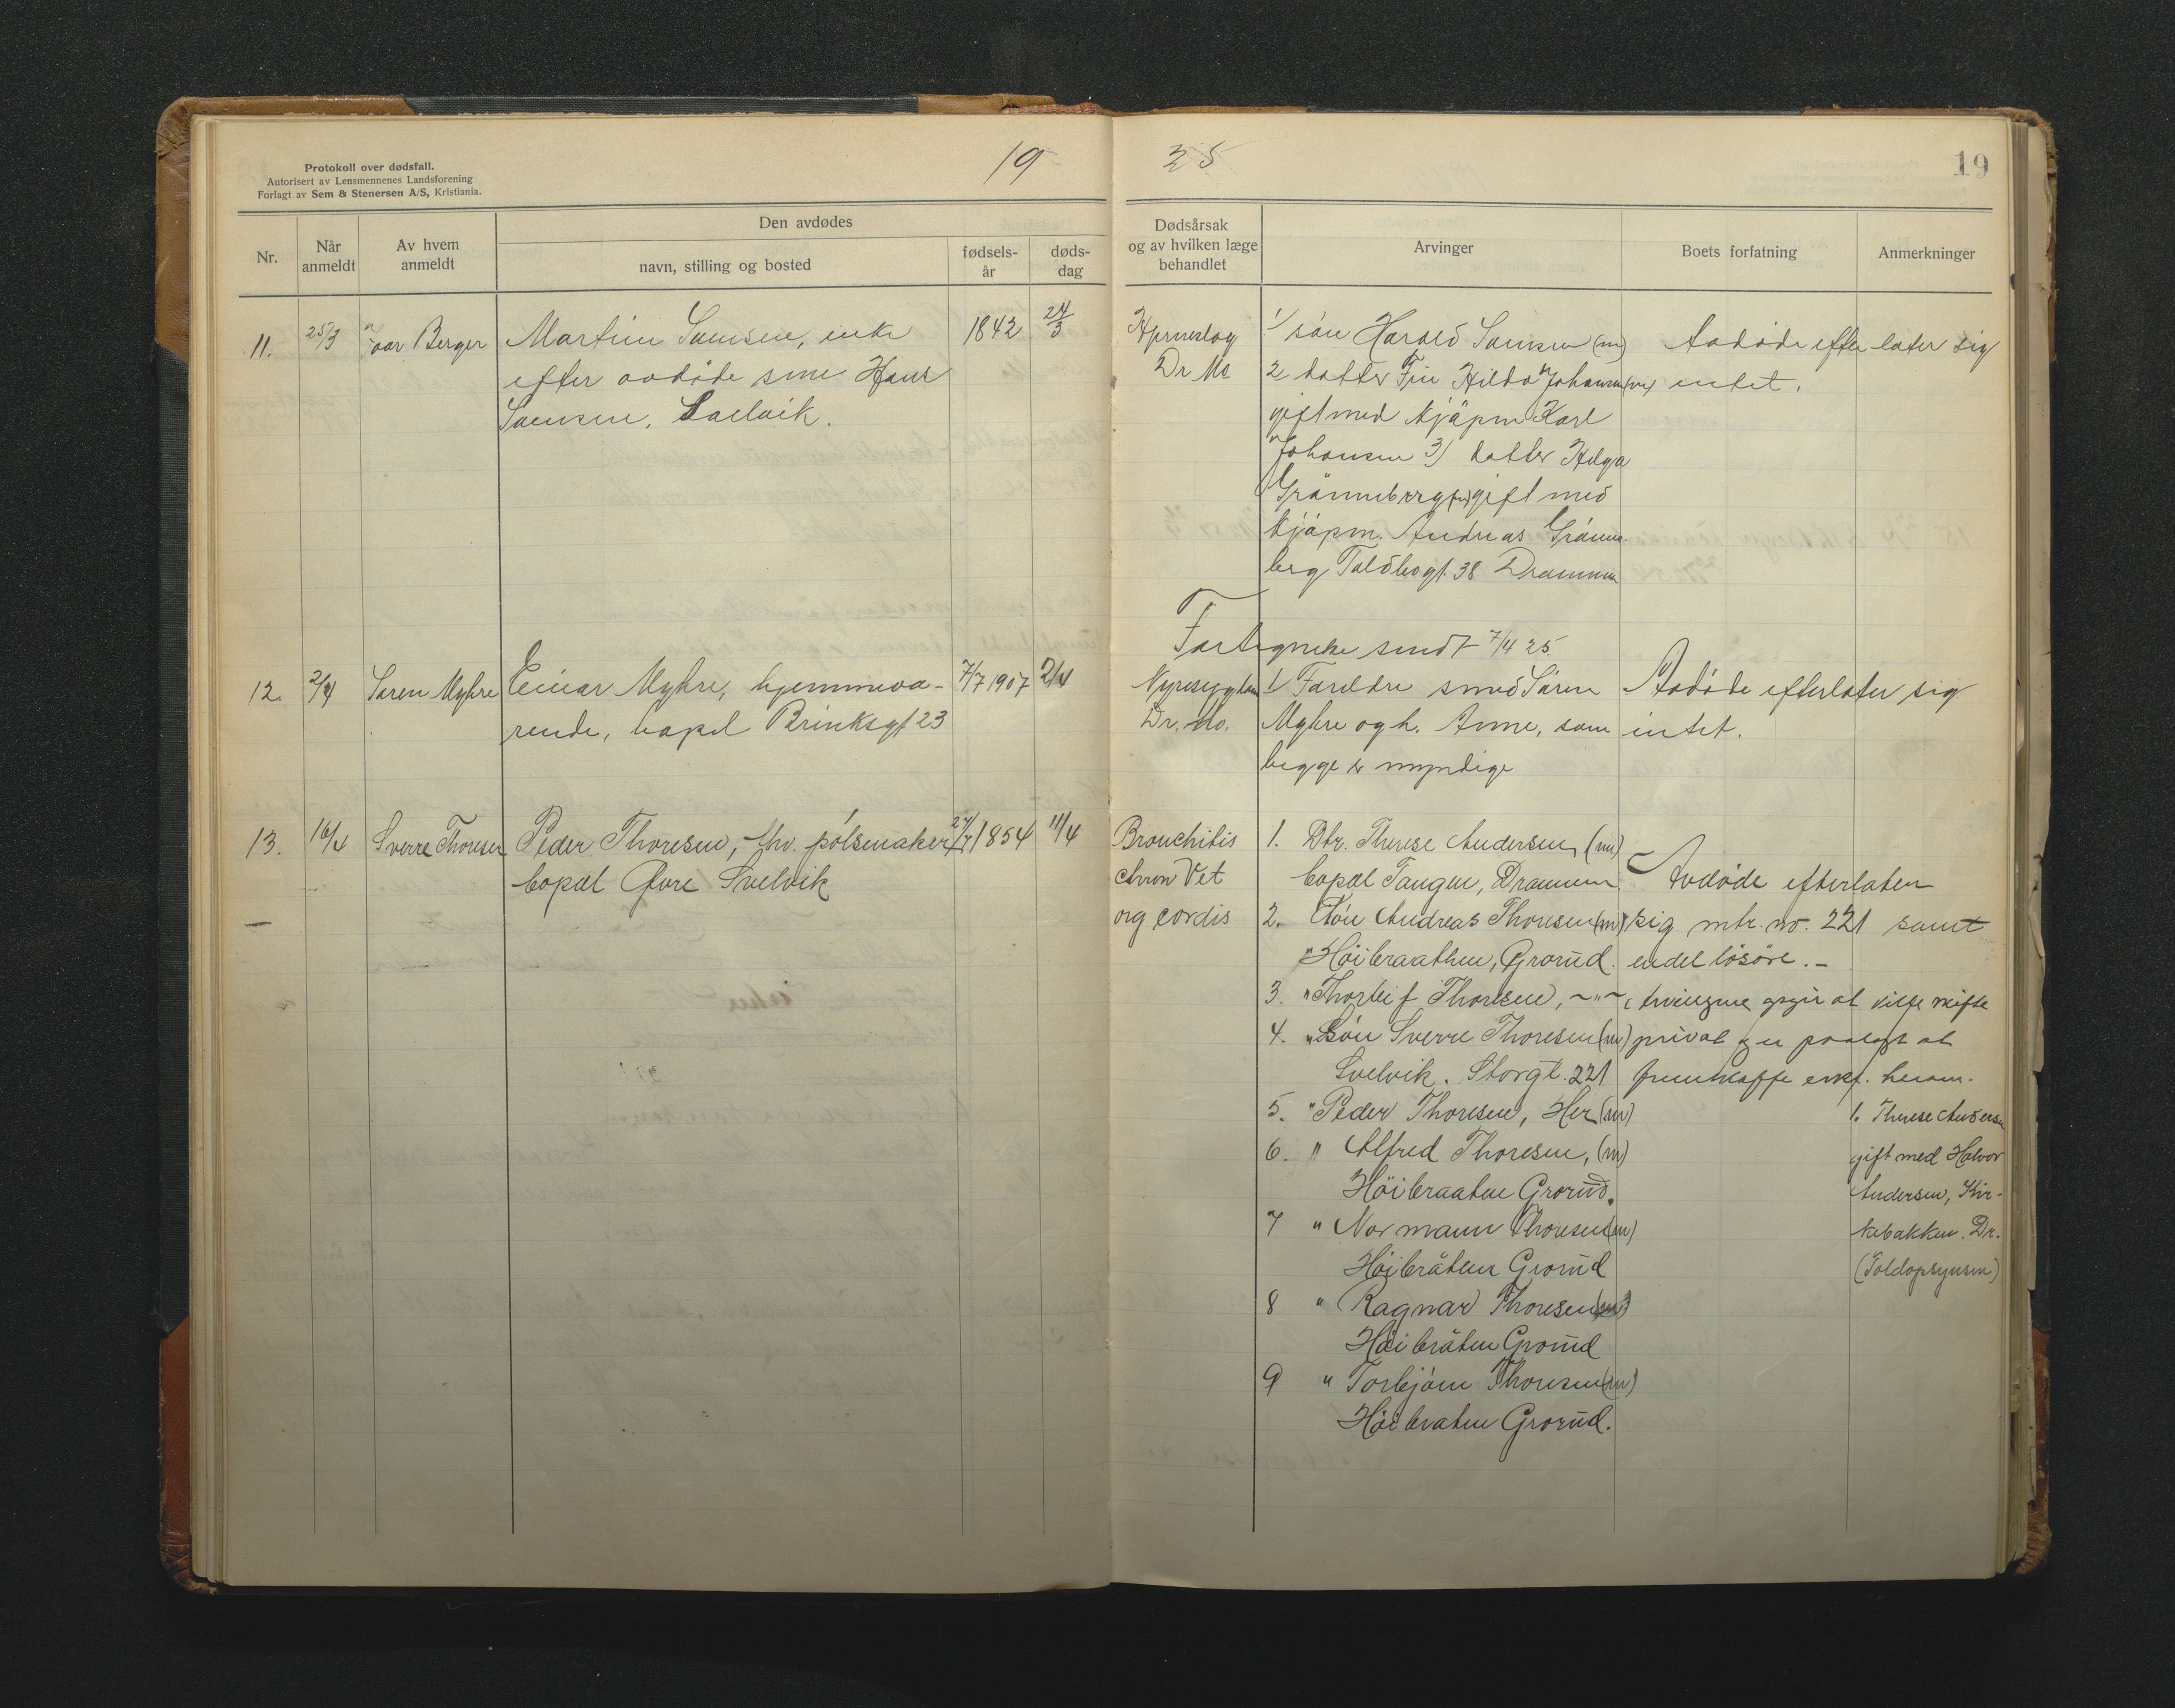 Protokoll over dødsfall.
Autorisert av Lensmennenes Landsforening
Forlagt av Sem & Stenersen A/S, Kristiania.
19
25
19
Nr.
Når anmeldt
Av hvem anmeldt
Den avdødes
navn, stilling og bosted
fødsels-år
døds-dag
Dødsårsak og av hvilken læge behandlet
Arvinger
Boets forfatning
Anmerkninger
11. 25/3 Berger Martin Samsen, enke 1842 24/3
efter avdöde sme Hans
Samsen, Svelvik.
Hjerneslag
Dr Mo
1/ sön Harald Samsen (m)
2 datter Fru Hilda Johansen (m)
gift med kjöpm Karl
Johansen 3) datter Helga
Grönneberg (m) gift med
kjöpm. Andreas Grönne-
berg Toldbogt. 38 Drammen
Avdöde efterlater sig
intet.
Fortegnelse sendt 7/4 25
12. 2/4 Søren Myhre Einar Myhre, hjemmeva- 7/7 1907 2/4
rende, bopæl Brinksgt 23
Nyresygdom
Dr. Mo.
1/ Foreldre smed Sören
Myhre og h. Anne, som
begge er myndige
Avdöde efterlater sig
intet.
13. 16/4 Sverre Thoresen Peder Thoresen, fhv. pölsemaker 27/7 1854 11/4
bopæl Øvre Svelvik
Bronchitis
chron Vet
org cordis
1. Dtr. Therese Andersen, (m)
bopæl Tangen, Drammen
2. Sön Andreas Thoresen (m)
Höibraathen, Grorud.
3. " Thorleif Thoresen, ~"~
4. " Sön Sverre Thoresen (m)
Svelvik. Storgt. 221
5. " Peder Thoresen, Her (m)
6. " Alfred Thoresen, (m)
Höibraaten Grorud.
7 " Normann Thoresen (m)
Höibråten Grorud
8 " Ragnar Thoresen (m)
Höibråten Grorud
9 " Torbjörn Thoresen (m)
Höibraten Grorud.
Avdöde efterlater
sig mtr. no. 221 samt
endel lösöre.-
Arvingene opgir at ville skifte
privat og er paalagt at
fremskaffe erkl. herom.
1. Therese Andersen
gift med Halvor
Andersen, Kir-
kebakken. Dr.
(Toldopsynsm)